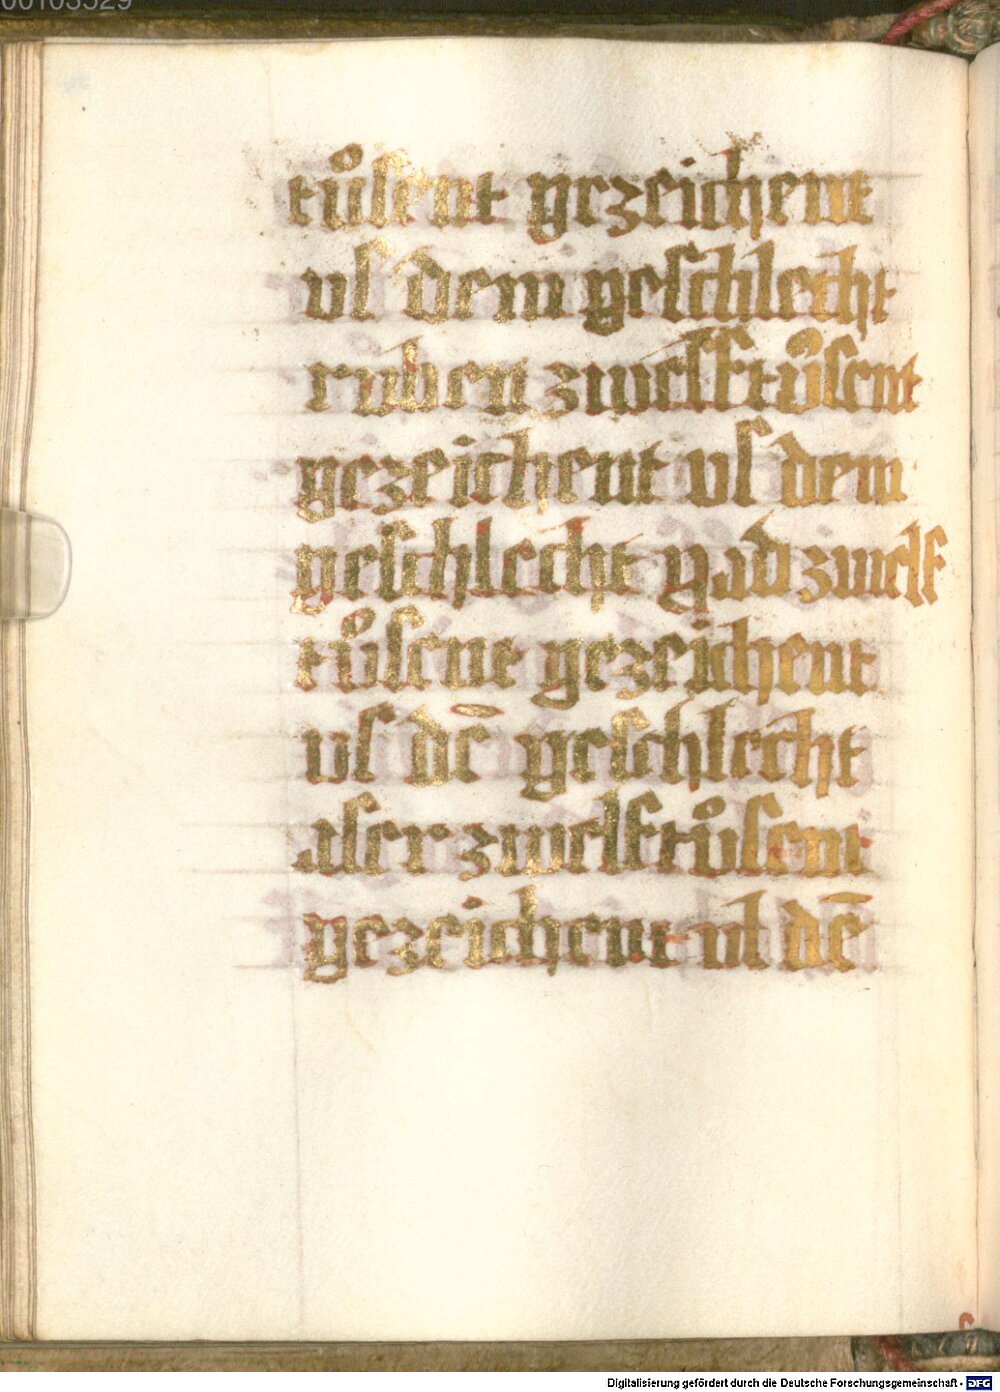 00103529
tůſent gezeichent
vſ dem geſchlecht
ruben zwelftůſent
gezeichent vſ dem
geſchlecht gad zwelf
tůſent gezeichent
vſ dē geſchlecht
aſer zwelftůſent
gezeichent vſ dē
Digitalisierung gefördert durch die Deutsche Forschungsgemeinschaft - DFG